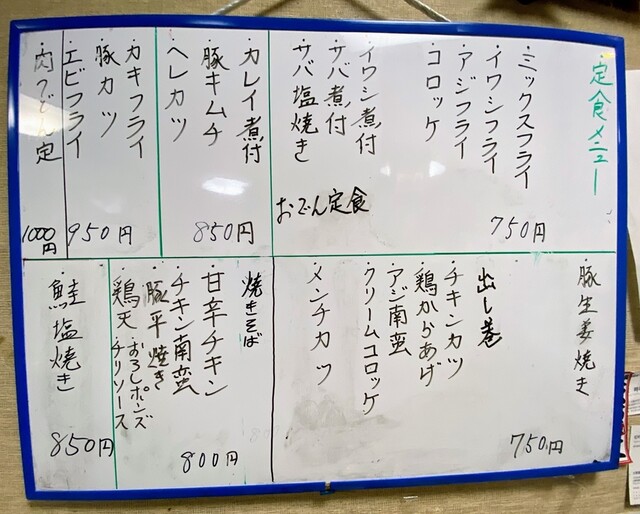 定食メニュー
・ミックスフライ
・イワシフライ
・アジフライ
・コロッケ
・イワシ煮付
・サバ煮付
・サバ塩焼き
おでん定食
750円
・カレイ煮付
・豚キムチ
・ヘレカツ
850円
・カキフライ
・豚カツ
・エビフライ
950円
・肉うどん定
1000円
・豚生姜焼き
・出し巻
・チキンカツ
・鶏からあげ
・アジ南蛮
・クリームコロッケ
・メンチカツ
750円
・焼きそば
・甘辛チキン
・チキン南蛮
・豚平焼き
・鶏天・おろしポンズ
・チリソース
800円
・鮭塩焼き
850円